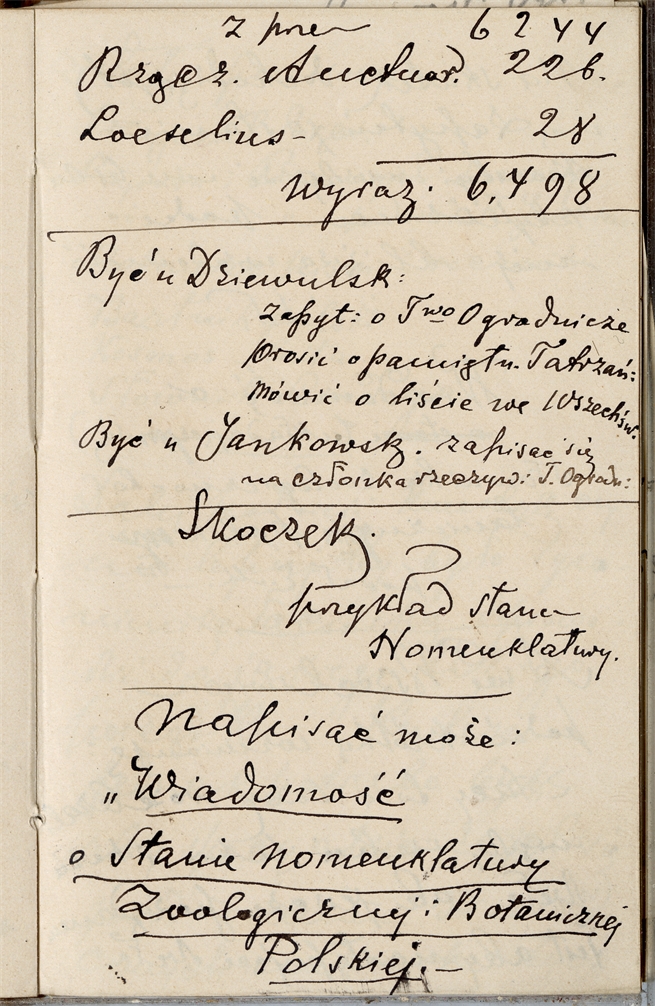 z prze 6 2 4 4
Rzącz. Auctuar. 226.
Loeselius - 28
wyraz. 6,498
Być u Dziewulsk:
Zapyt: o Two Ogrodnicze
Prosić o pamiętn. Tatrzań:
Mówić o liście we Wszechśw.
Być u Jankowsk. zapisać się
na członka rzeczyw: T. Ogrodn:
Skoczek.
przykład stanu
Nomenklatury.
Napisać może:
„Wiadomość
o Stanie nomenklatury
Zoologicznej i Botanicznej
Polskiej. -